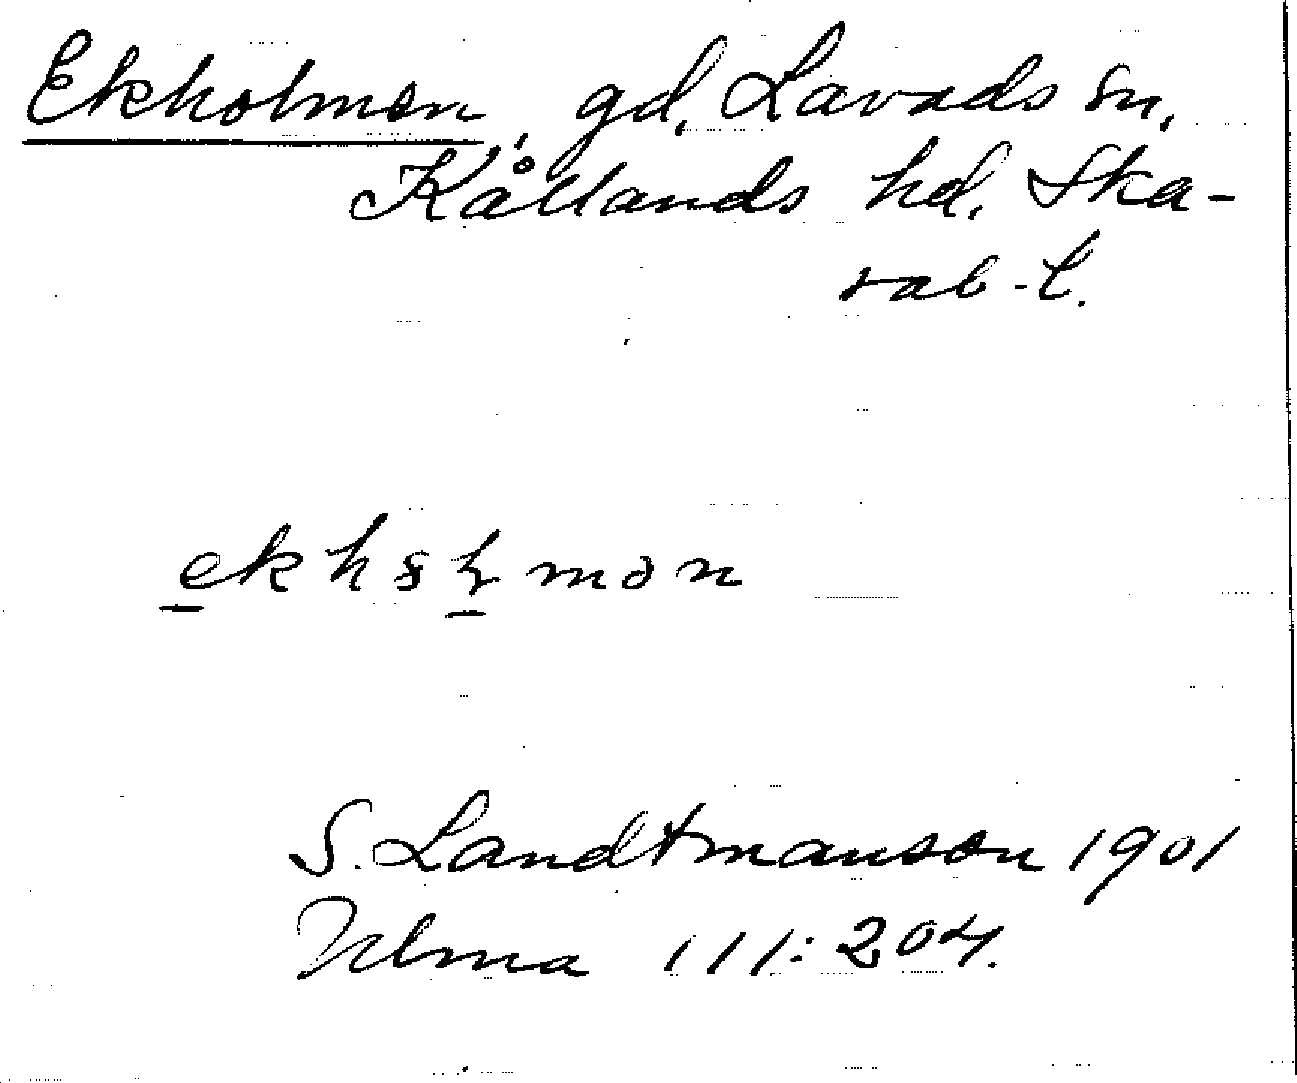 Ekholmen, gd, Lavads sn,
Kållands hd, Ska-
rab-l.
S. Landtmanson 1901
Ulma 111:204.